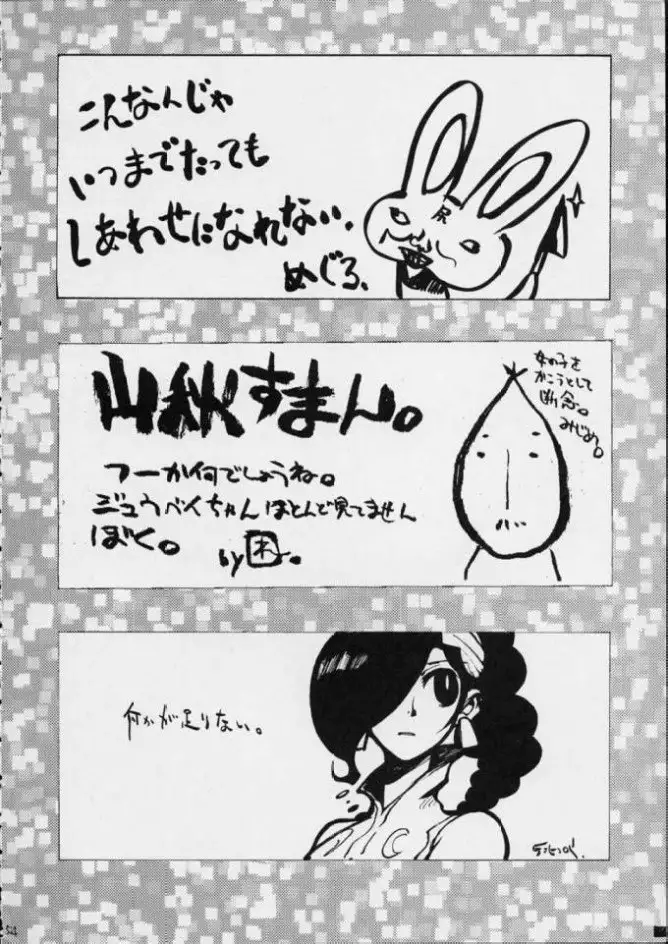 こんなんじゃ
いつまでたっても
しあわせになれない、
めぐろ、
尻
山秋すまん。
つーか何でしょうね。
ジュウベイちゃんほとんど見てません
ぼく。
by困。
女の子を
かこうとして
断念。
みじめ。
何かが足りない。